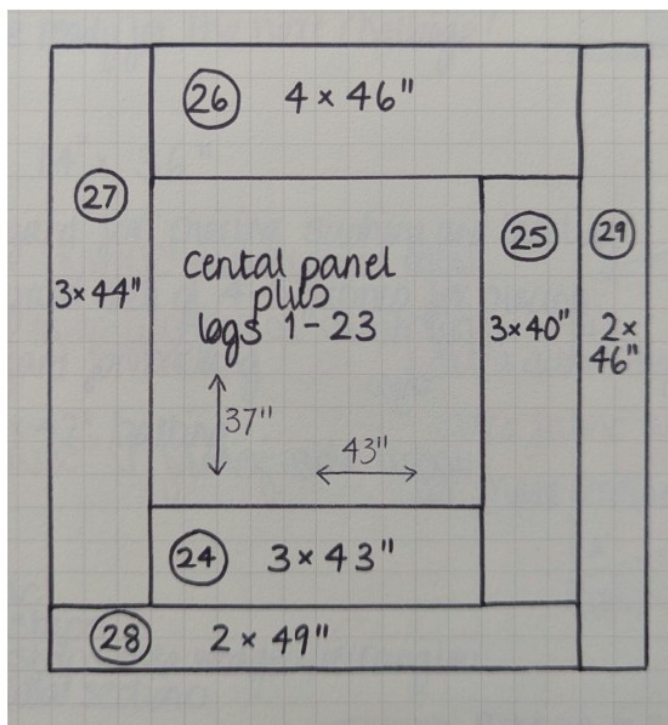 26 4 × 46"
27
3 × 44"
Cental panel
plus
logs 1 - 23
25
3 × 40"
29
2 ×
46"
37"
43"
24 3 × 43"
28 2 × 49"